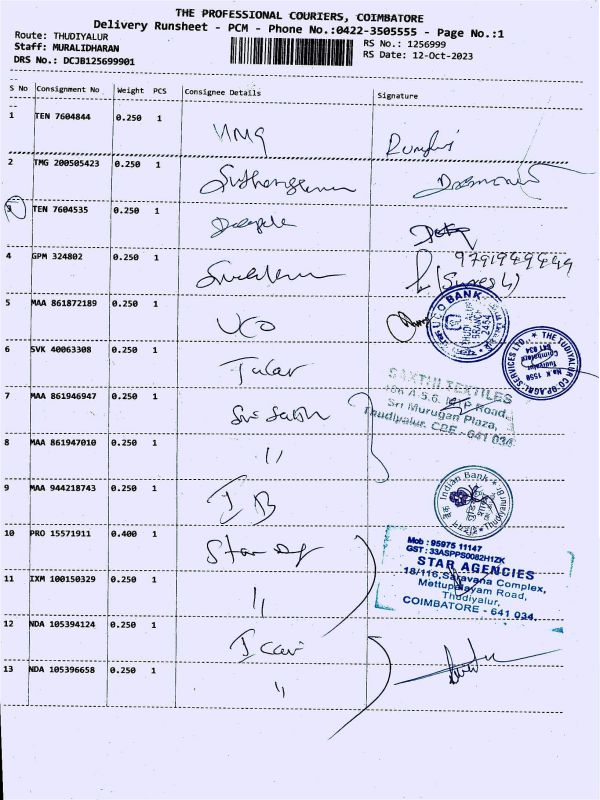 THE PROFESSIONAL COURIERS, COIMBATORE
Delivery Runsheet - PCM - Phone No.:0422-3505555 - Page No.:1
Route: THUDIYALUR
Staff: MURALIDHARAN
DRS No.: DCJB125699901
RS No.: 1256999
RS Date: 12-Oct-2023
S No Consignment No Weight PCS Consignee Details Signature
1 TEN 7604844 0.250 1
2 TMG 200505423 0.250 1
3 TEN 7604535 0.250 1
4 GPM 324802 0.250 1
9791949449
(Suresh)
5 MAA 861872189 0.250 1 UCO
UCO BANK
6 SVK 40063308 0.250 1
THE TUDIYALUR CO-OP.AGRL.SERVICES LTD.,
No.K 1550
Tudiyalur
Coimbatore
641 034
SAKTHI TEXTILES
Sri Murugan Plaza,
Thudiyalur, CBE - 641 034
7 MAA 861946947 0.250 1 Sri Sakthi
8 MAA 861947010 0.250 1 "
9 MAA 944218743 0.250 1 IB
Indian Bank
Thudiyalur
10 PRO 15571911 0.400 1 Star Ag
Mob : 95975 11147
GST : 33ASPPS0082H1ZK
STAR AGENCIES
18/116, Saravana Complex,
Mettupalayam Road,
Thudiyalur,
COIMBATORE - 641 034.
11 IXM 100150329 0.250 1 "
12 NDA 105394124 0.250 1
13 NDA 105396658 0.250 1 "